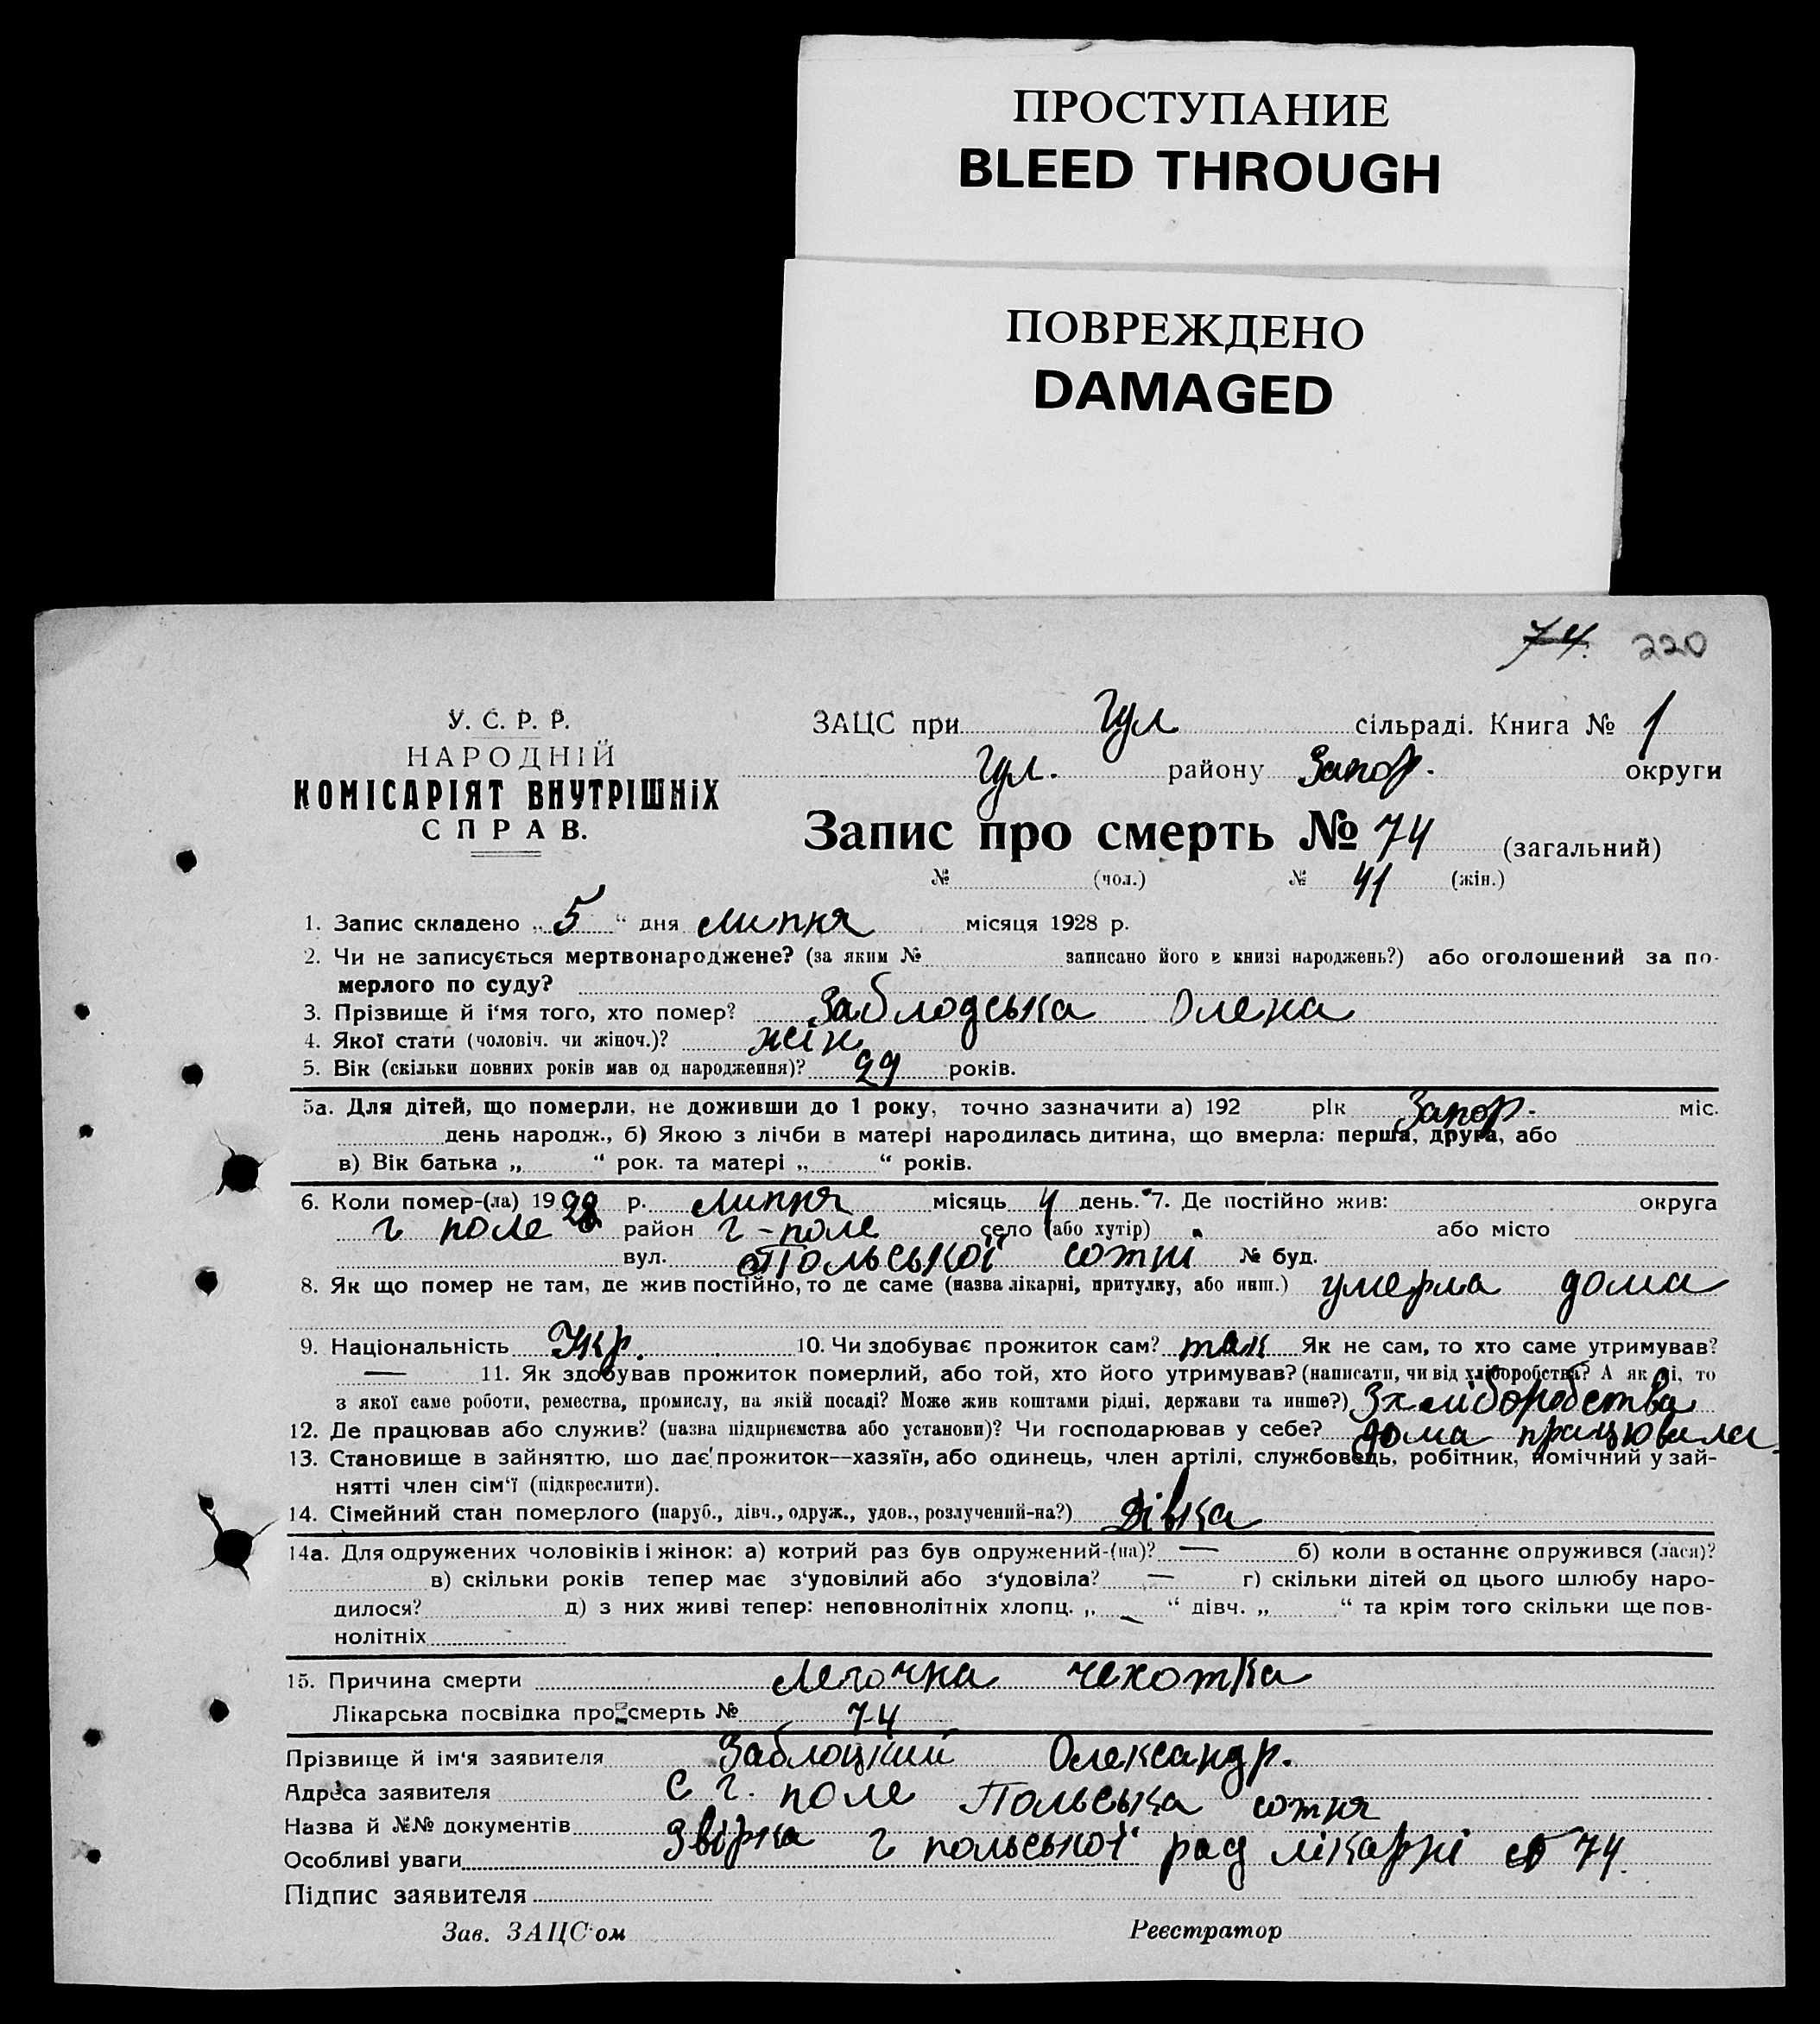 ПРОСТУПАНИЕ
BLEED THROUGH
ПОВРЕЖДЕНО
DAMAGED
74. 220
У. С. Р. Р.
НАРОДНІЙ
КОМІСАРІЯТ ВНУТРІШНІХ
СПРАВ.
ЗАЦС при Гул сільраді. Книга № 1
Гул. району Запор. округи
Запис про смерть № 74 (загальний)
№ (чол.) № 41 (жін.)
1. Запис складено „ 5 “ дня липня місяця 1928 р.
2. Чи не записується мертвонароджене? (за яким № записано його в книзі народжень?) або оголошений за по-
мерлого по суду?
3. Прізвище й і'мя того, хто помер? Заблодська Олена
4. Якої стати (чоловіч. чи жіноч.)? жін
5. Вік (скільки повних років мав од народження)? 29 років.
5а. Для дітей, що померли, не доживши до 1 року, точно зазначити а) 192 рік Запор. міс.
день народж., б) Якою з лічби в матері народилась дитина, що вмерла: перша, друга, або
в) Вік батька „ “ рок. та матері „ “ років.
6. Коли помер-(ла) 1928 р. липня місяць 4 день. 7. Де постійно жив: округа
г поле район г-поле село (або хутір) або місто
вул. Польської сотні № буд.
8. Як що помер не там, де жив постійно, то де саме (назва лікарні, притулку, або инш.) умерла дома
9. Національність Укр. 10. Чи здобуває прожиток сам? так Як не сам, то хто саме утримував?
— 11. Як здобував прожиток померлий, або той, хто його утримував? (написати, чи від хліборобства? А як ні, то
з якої саме роботи, ремества, промислу, на якій посаді? Може жив коштами рідні, держави та инше?) З хліборобства
12. Де працював або служив? (назва підприємства або установи)? Чи господарював у себе? дома працювала
13. Становище в зайняттю, що дає прожиток—хазяїн, або одинець, член артілі, службовець, робітник, помічний у зай-
нятті член сім'ї (підкреслити).
14. Сімейний стан померлого (паруб., дівч., одруж., удов., розлучений-на?) Дівка
14а. Для одружених чоловіків і жінок: а) котрий раз був одружений-(на)? — б) коли в останнє одружився (лася)?
в) скільки років тепер має з'удовілий або з'удовіла? — г) скільки дітей од цього шлюбу наро-
дилося? д) з них живі тепер: неповнолітніх хлопц. „ “ дівч. „ “ та крім того скільки ще пов-
нолітніх
15. Причина смерти Легочна чехотка
Лікарська посвідка про смерть № 74
Прізвище й ім'я заявителя Заблоцкий Олександр.
Адреса заявителя с г. поле Польська сотня
Назва й №№ документів Звірка г польської рад лікарні № 74.
Особливі уваги
Підпис заявителя
Зав. ЗАЦС'ом Реєстратор